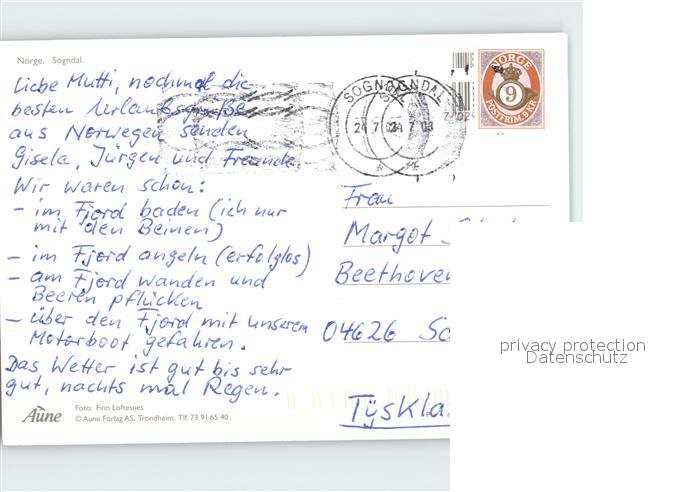 Norge. Sogndal.
Liebe Mutti, nochmal die
besten Urlaubsgrüße
aus Norwegen senden
Gisela, Jürgen und Freunde.
Wir waren schon:
- im Fjord baden (ich nur
mit den Beinen)
- im Fjord angeln (erfolglos)
- am Fjord wandern und
Beeren pflücken
- über den Fjord mit unserem
Motorboot gefahren.
Das Wetter ist gut bis sehr
gut, nachts mal Regen.
Aune
Foto: Finn Loftesnes
© Aune Forlag AS, Trondheim. Tlf. 73 91 65 40
SOGNDAL
24 7 03
NORGE
9
POSTFRIM. 9 KR
Frau
Margot
Beethove
04626 Sc
Tyskla
privacy protection
Datenschutz